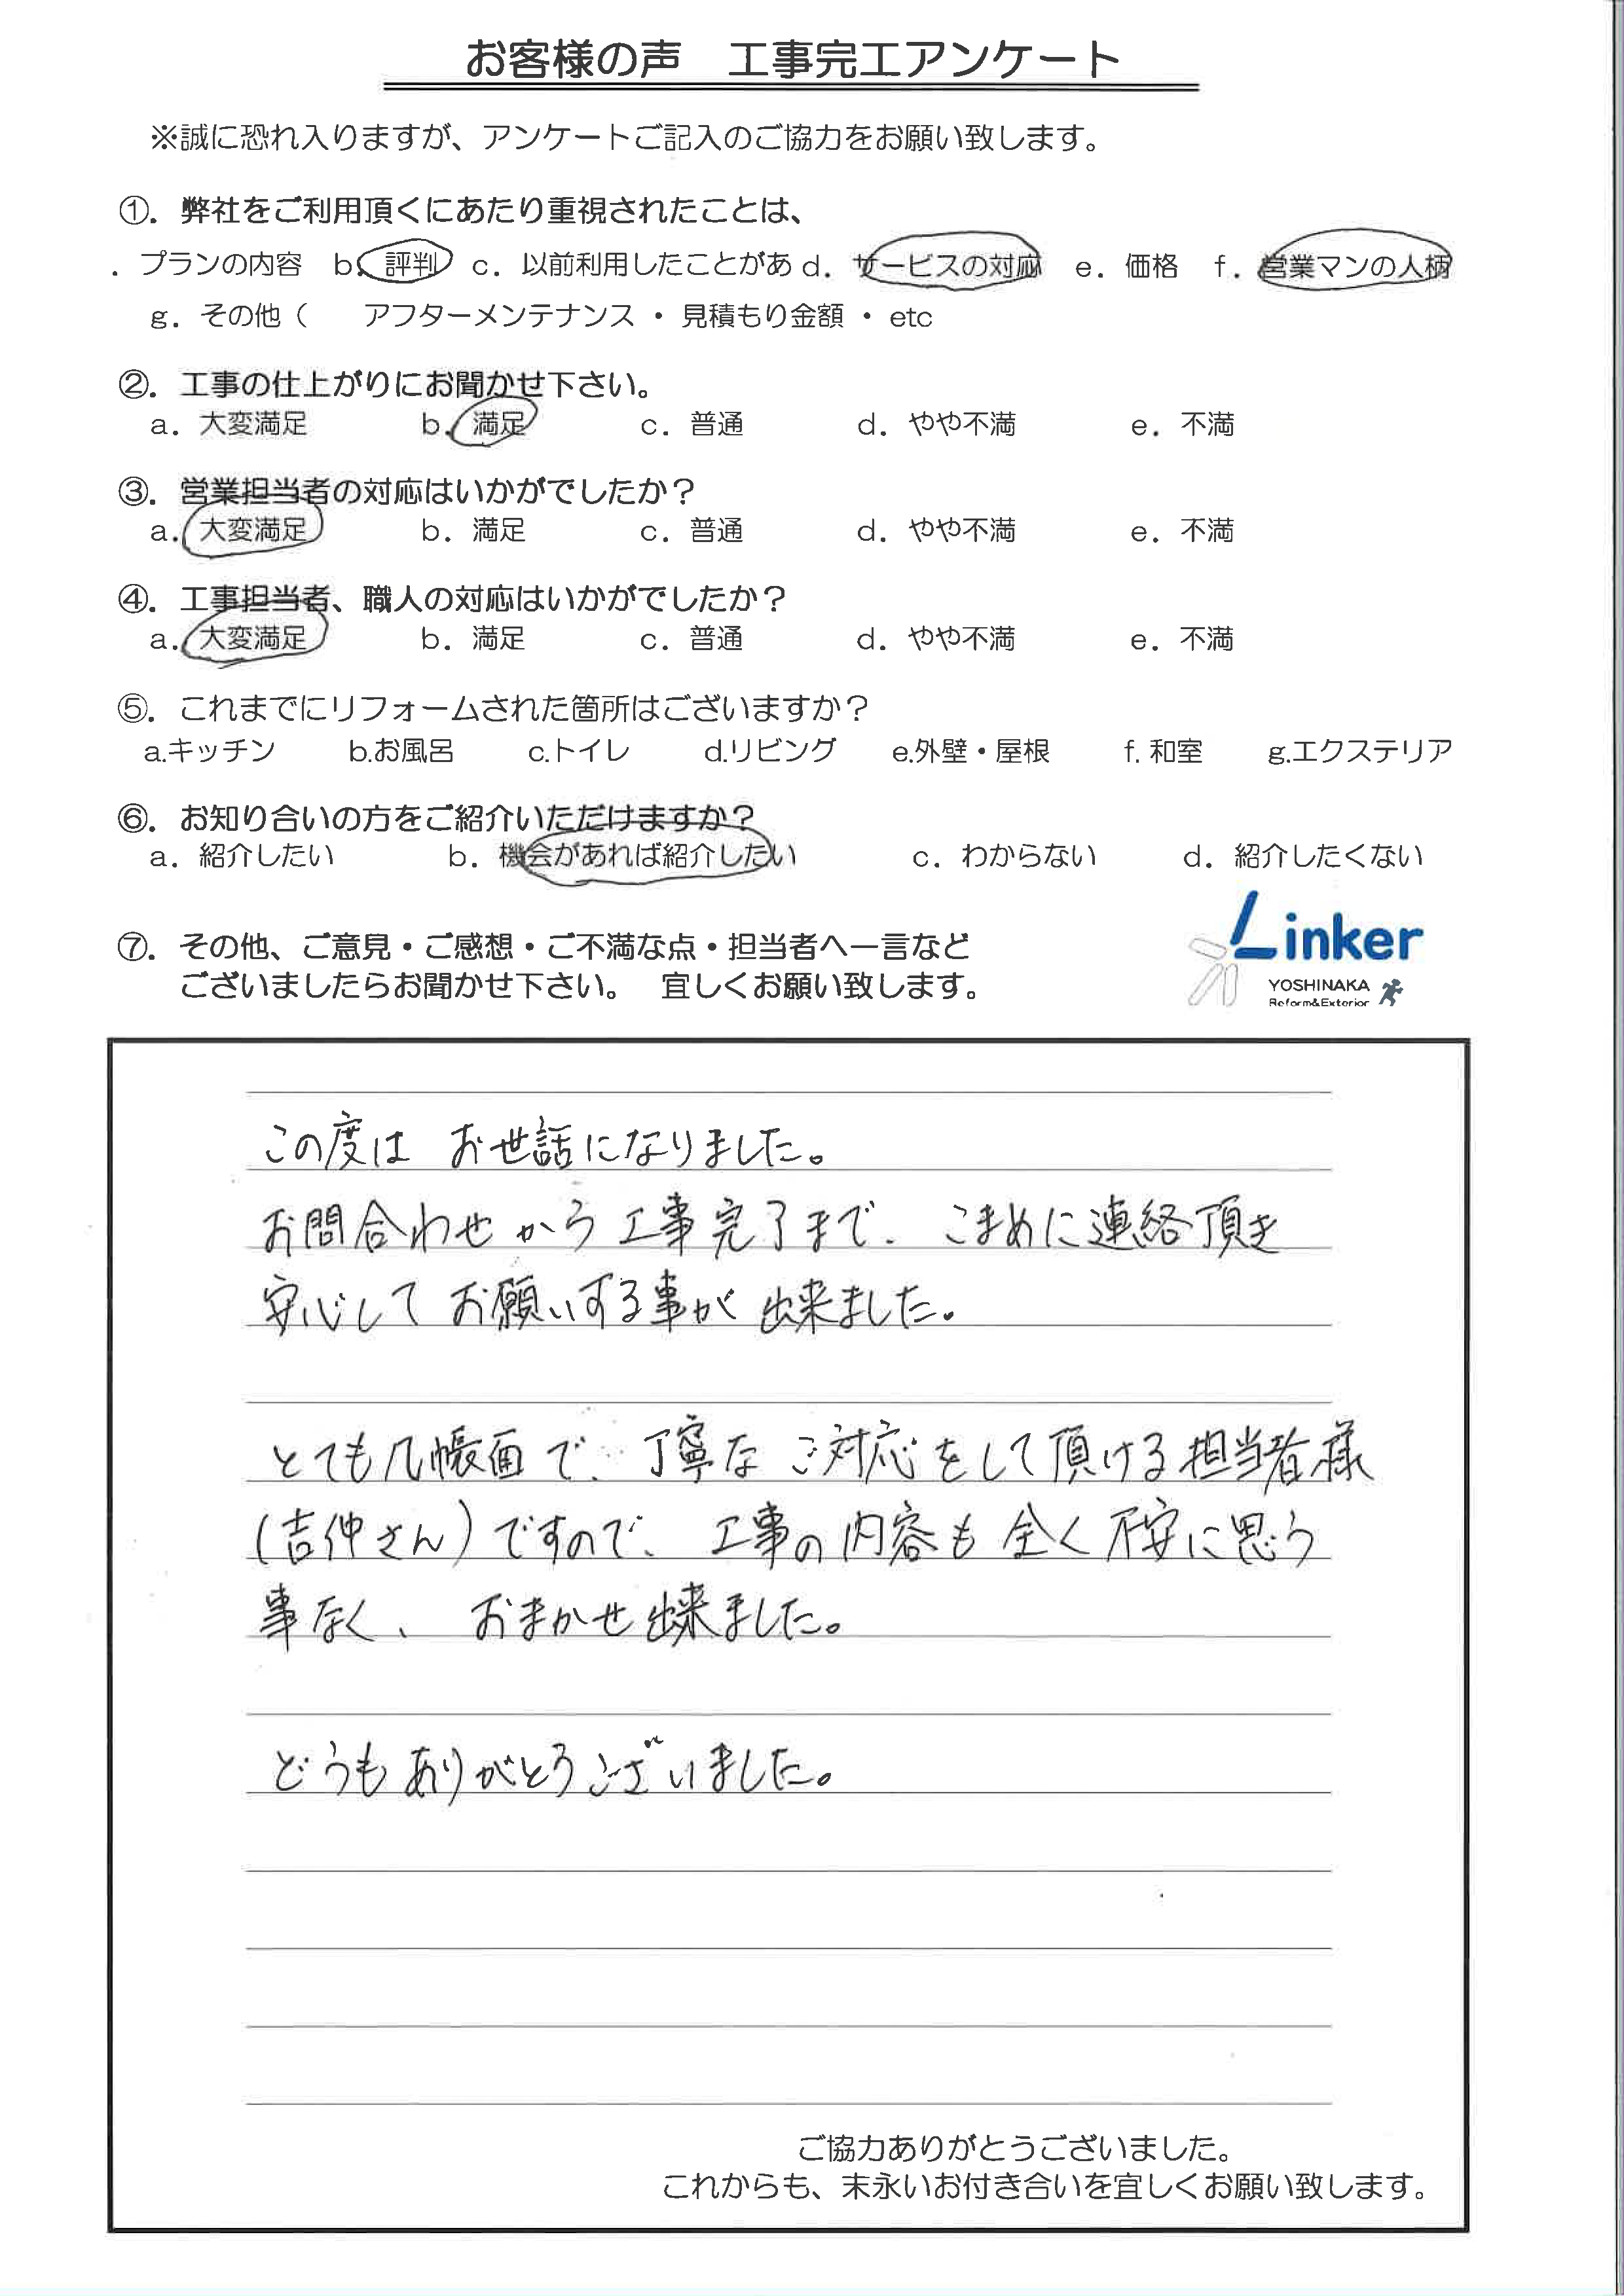 お客様の声　工事完工アンケート
※誠に恐れ入りますが、アンケートご記入のご協力をお願い致します。
①．弊社をご利用頂くにあたり重視されたことは、
．プランの内容　b．評判　c．以前利用したことがあ d．サービスの対応　e．価格　f．営業マンの人柄
g．その他（　　アフターメンテナンス・見積もり金額・etc
②．工事の仕上がりにお聞かせ下さい。
a．大変満足　b．満足　c．普通　d．やや不満　e．不満
③．営業担当者の対応はいかがでしたか？
a．大変満足　b．満足　c．普通　d．やや不満　e．不満
④．工事担当者、職人の対応はいかがでしたか？
a．大変満足　b．満足　c．普通　d．やや不満　e．不満
⑤．これまでにリフォームされた箇所はございますか？
a.キッチン　b.お風呂　c.トイレ　d.リビング　e.外壁・屋根　f. 和室　g.エクステリア
⑥．お知り合いの方をご紹介いただけますか？
a．紹介したい　b．機会があれば紹介したい　c．わからない　d．紹介したくない
⑦．その他、ご意見・ご感想・ご不満な点・担当者へ一言など
ございましたらお聞かせ下さい。　宜しくお願い致します。
Linker
YOSHINAKA
Reform&Exterior
この度は　お世話になりました。
お問合わせから工事完了まで、こまめに連絡頂き
安心してお願いする事が出来ました。
とても几帳面で、丁寧なご対応をして頂ける担当者様
（吉仲さん）ですので、工事の内容も全く不安に思う
事なく、おまかせ出来ました。
どうもありがとうございました。
ご協力ありがとうございました。
これからも、末永いお付き合いを宜しくお願い致します。